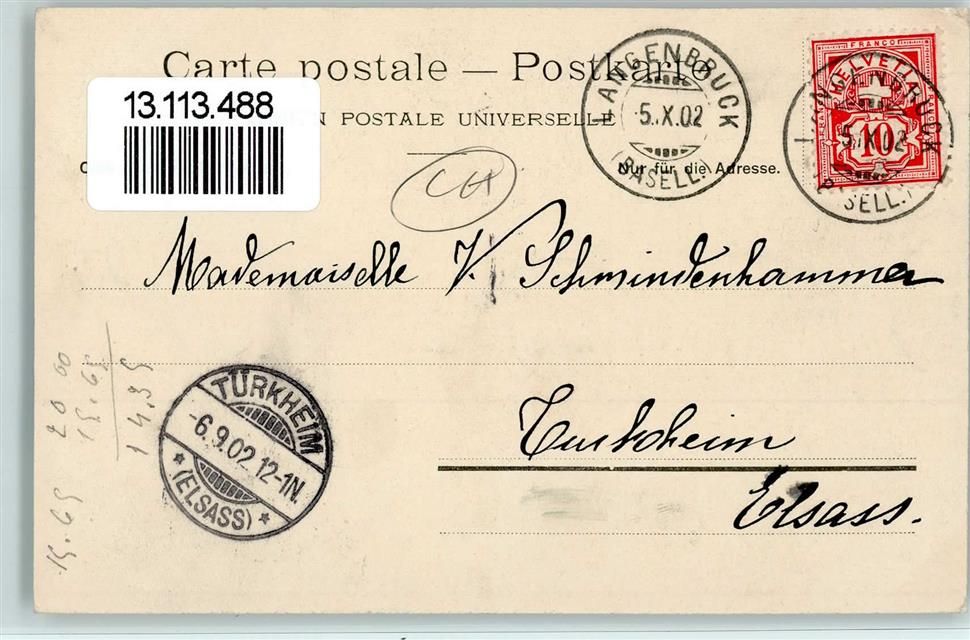 Carte postale — Postkarte
13.113.488
N POSTALE UNIVERSELLE
Nur für die Adresse.
LANGENBRUCK
5.X.02
(BASELL.)
FRANCO
HELVETIA
10
LANGENBRUCK
5.X.02
(BASELL.)
CH
Mademoiselle V. Schmindenhammer
Turkheim
Elsass.
TÜRKHEIM
-6.9.02.12-1N.
* (ELSASS) *
20 00
15.65
14.35
15.65